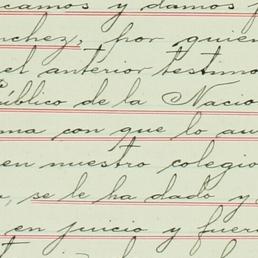 camos y damos f
nchez, por quien
el anterior testimo
Público de la Nacio
ma con que lo au
en nuestro colegio
o, se le ha dado y
en juicio y fuer